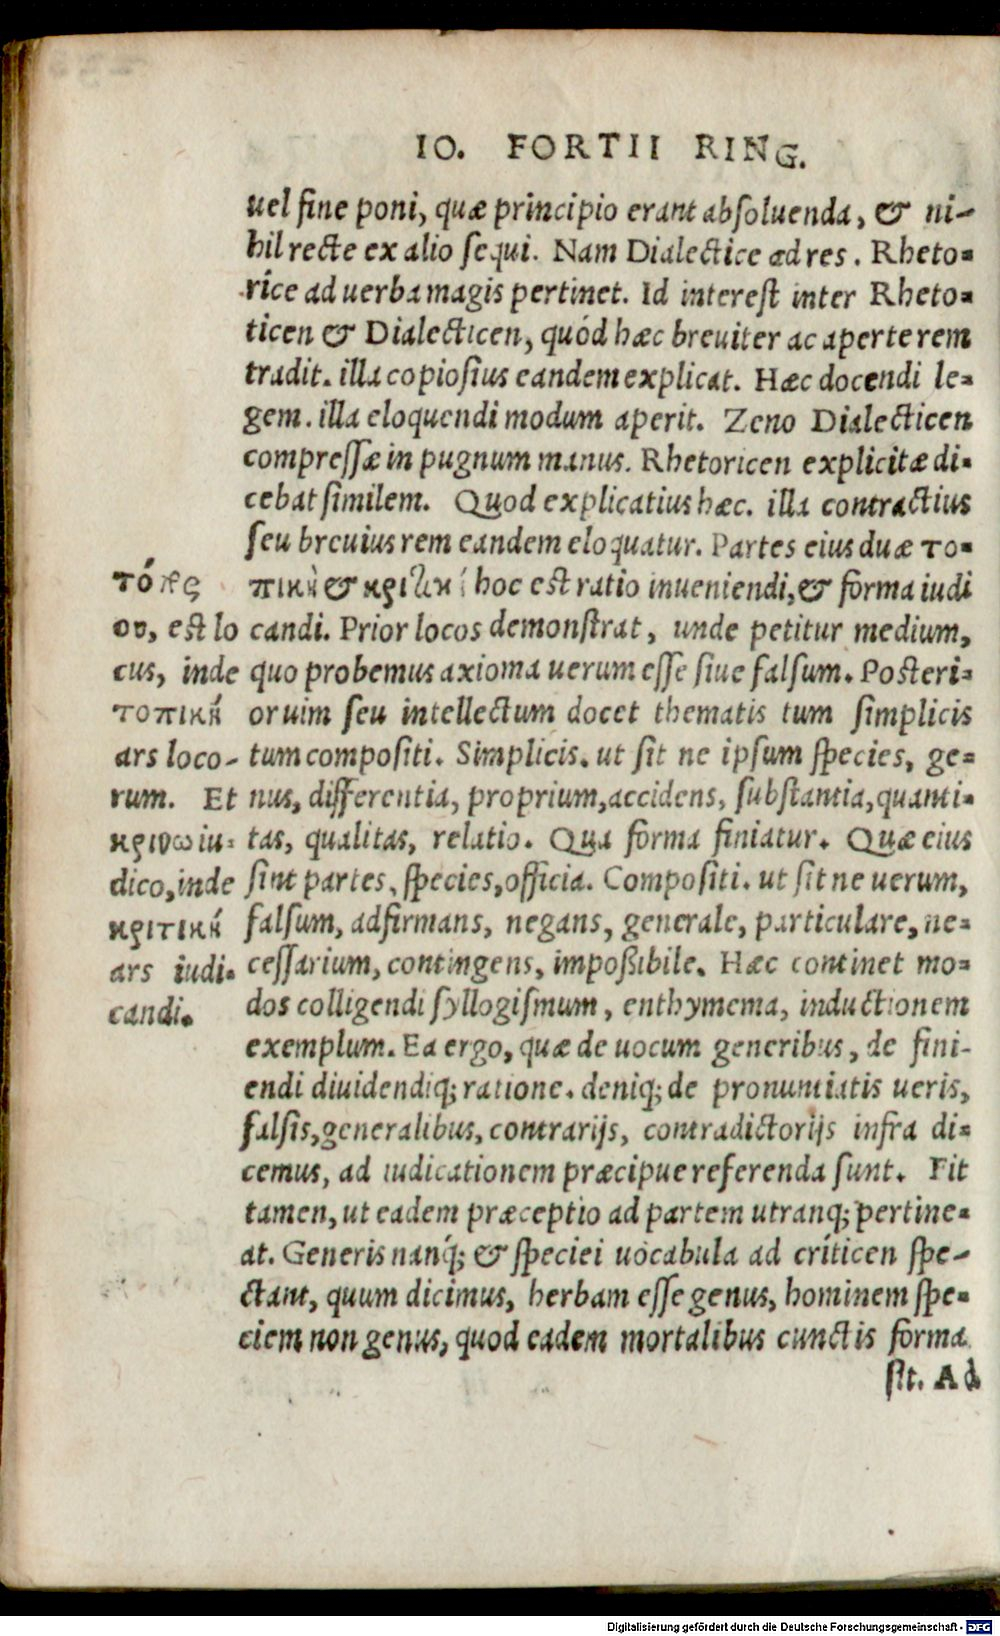 IO. FORTII RING.
uel fine poni, quæ principio erant absoluenda, & ni-
hil recte ex alio sequi. Nam Dialectice ad res. Rheto-
ríce ad uerba magis pertinet. Id interest inter Rheto-
ticen & Dialecticen, quód hæc breuiter ac aperte rem
tradit. illa copiosius eandem explicat. Hæc docendi le-
gem. illa eloquendi modum aperit. Zeno Dialecticen
compressæ in pugnum manus. Rhetoricen explicitæ di-
cebat similem. Quod explicatius hæc. illa contractius
seu breuius rem eandem eloquatur. Partes eius duæ το-
πικὴ & κριτικὴ hoc est ratio inueniendi, & forma iudi
candi. Prior locos demonstrat, unde petitur medium,
quo probemus axioma uerum esse siue falsum. Posteri-
or uim seu intellectum docet thematis tum simplicis
tum compositi. Simplicis. ut sit ne ipsum species, ge-
nus, differentia, proprium, accidens, substantia, quanti-
tas, qualitas, relatio. Qua forma finiatur. Quæ eius
sint partes, species, officia. Compositi. ut sit ne uerum,
falsum, adfirmans, negans, generale, particulare, ne-
cessarium, contingens, impoßibile. Hæc continet mo-
dos colligendi syllogismum, enthymema, inductionem
exemplum. Ea ergo, quæ de uocum generibus, de fini-
endi diuidendiq; ratione. deniq; de pronuntiatis ueris,
falsis, generalibus, contrarijs, contradictorijs infra di-
cemus, ad iudicationem præcipue referenda sunt. Fit
tamen, ut eadem præceptio ad partem utranq; pertine-
at. Generis nanq́; & speciei uocabula ad críticen spe-
ctant, quum dicimus, herbam esse genus, hominem spe-
ciem non genus, quod eadem mortalibus cunctis forma
sit. Ad
τόπος
ου, est lo
cus, inde
τοπικὴ
ars loco-
rum. Et
κρινω iu-
dico, inde
κριτικὴ
ars iudi-
candi.
Digitalisierung gefördert durch die Deutsche Forschungsgemeinschaft - DFG